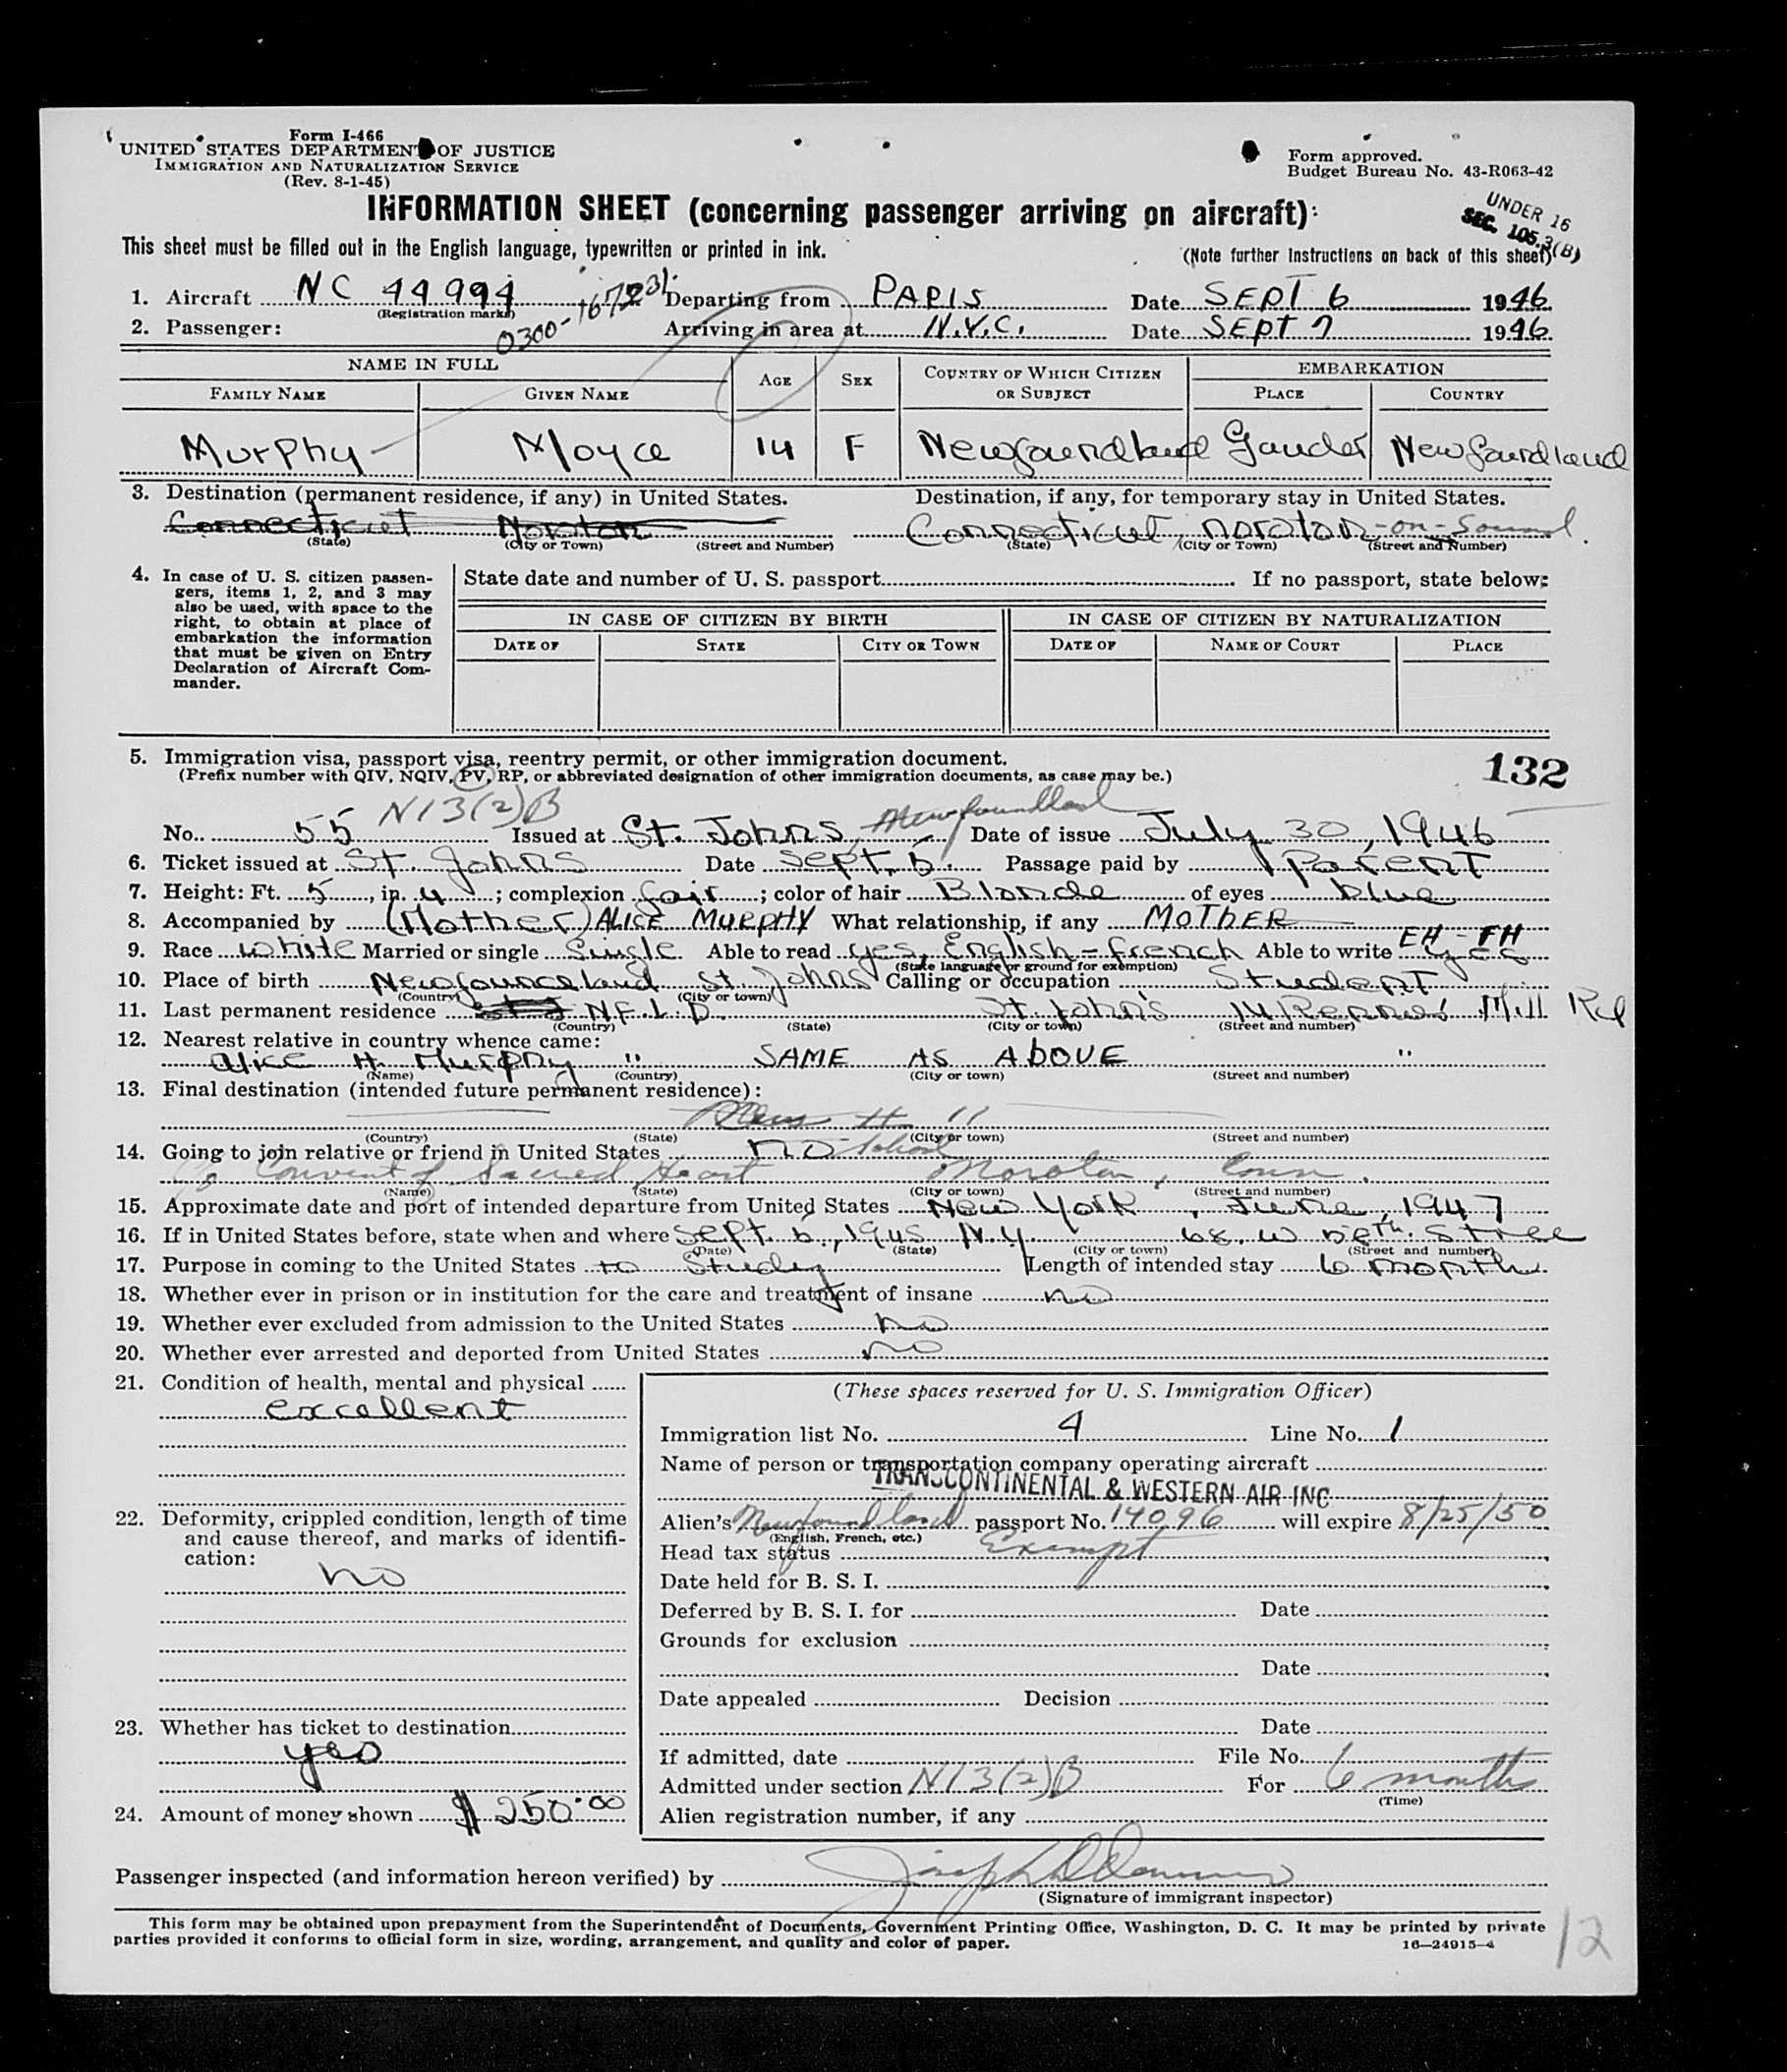 Form I-466
UNITED STATES DEPARTMENT OF JUSTICE
IMMIGRATION AND NATURALIZATION SERVICE
(Rev. 8-1-45)
Form approved.
Budget Bureau No. 43-R063-42
INFORMATION SHEET (concerning passenger arriving on aircraft):
UNDER 16
SEC. 105.3(B)
This sheet must be filled out in the English language, typewritten or printed in ink.
(Note further instructions on back of this sheet)
1. Aircraft NC 44994 Departing from PARIS Date SEPT 6 1946
(Registration marks)
2. Passenger: Arriving in area at N.Y.C. Date SEPT 7 1946
NAME IN FULL AGE SEX COUNTRY OF WHICH CITIZEN OR SUBJECT EMBARKATION
FAMILY NAME GIVEN NAME PLACE COUNTRY
Murphy Moyca 14 F Newfoundland Gander Newfoundland
3. Destination (permanent residence, if any) in United States. Destination, if any, for temporary stay in United States.
Connecticut Noroton Connecticut, Noroton-on-Sound.
(State) (City or Town) (Street and Number) (State) (City or Town) (Street and Number)
4. In case of U. S. citizen passengers, items 1, 2, and 3 may also be used, with space to the right, to obtain at place of embarkation the information that must be given on Entry Declaration of Aircraft Commander.
State date and number of U. S. passport If no passport, state below:
IN CASE OF CITIZEN BY BIRTH IN CASE OF CITIZEN BY NATURALIZATION
DATE OF STATE CITY OR TOWN DATE OF NAME OF COURT PLACE
5. Immigration visa, passport visa, reentry permit, or other immigration document.
(Prefix number with QIV, NQIV, PV, RP, or abbreviated designation of other immigration documents, as case may be.)
132
N13(2)B
No. 55 Issued at St. Johns, Newfoundland Date of issue July 30, 1946
6. Ticket issued at St. Johns Date Sept. 5. Passage paid by Parent
7. Height: Ft. 5, in. 4; complexion fair; color of hair Blonde of eyes blue
8. Accompanied by (Mother) ALICE MURPHY What relationship, if any MOTHER
9. Race White Married or single Single Able to read yes, English - French Able to write yes
EH - FH
(State language or ground for exemption)
10. Place of birth Newfoundland St. Johns Calling or occupation Student
(Country) (City or town)
11. Last permanent residence N.F.L.D. St. John's 14 Rennies Mill Rd
(Country) (State) (City or town) (Street and number)
12. Nearest relative in country whence came:
Alice H. Murphy " SAME AS ABOVE "
(Name) (Country) (City or town) (Street and number)
13. Final destination (intended future permanent residence):
(Country) (State) (City or town) (Street and number)
14. Going to join relative or friend in United States no - School
c/o Convent of Sacred Heart Noroton, Conn.
(Name) (State) (City or town) (Street and number)
15. Approximate date and port of intended departure from United States New York, June, 1947
16. If in United States before, state when and where Sept. 6, 1945 N.Y. 68. W 58th. Stree
(Date) (State) (City or town) (Street and number)
17. Purpose in coming to the United States to Study Length of intended stay 6 months
18. Whether ever in prison or in institution for the care and treatment of insane no
19. Whether ever excluded from admission to the United States no
20. Whether ever arrested and deported from United States no
21. Condition of health, mental and physical
excellent
22. Deformity, crippled condition, length of time and cause thereof, and marks of identification:
no
23. Whether has ticket to destination
yes
24. Amount of money shown $ 250.00
(These spaces reserved for U. S. Immigration Officer)
Immigration list No. 4 Line No. 1
Name of person or transportation company operating aircraft
TRANSCONTINENTAL & WESTERN AIR INC
Alien's Newfoundland passport No. 14096 will expire 8/25/50
(English, French, etc.)
Head tax status Exempt
Date held for B. S. I.
Deferred by B. S. I. for Date
Grounds for exclusion
Date
Date appealed Decision
Date
If admitted, date File No.
Admitted under section N13(2)B For 6 months
(Time)
Alien registration number, if any
Passenger inspected (and information hereon verified) by
(Signature of immigrant inspector)
This form may be obtained upon prepayment from the Superintendent of Documents, Government Printing Office, Washington, D. C. It may be printed by private
parties provided it conforms to official form in size, wording, arrangement, and quality and color of paper.
16—24915-4
12